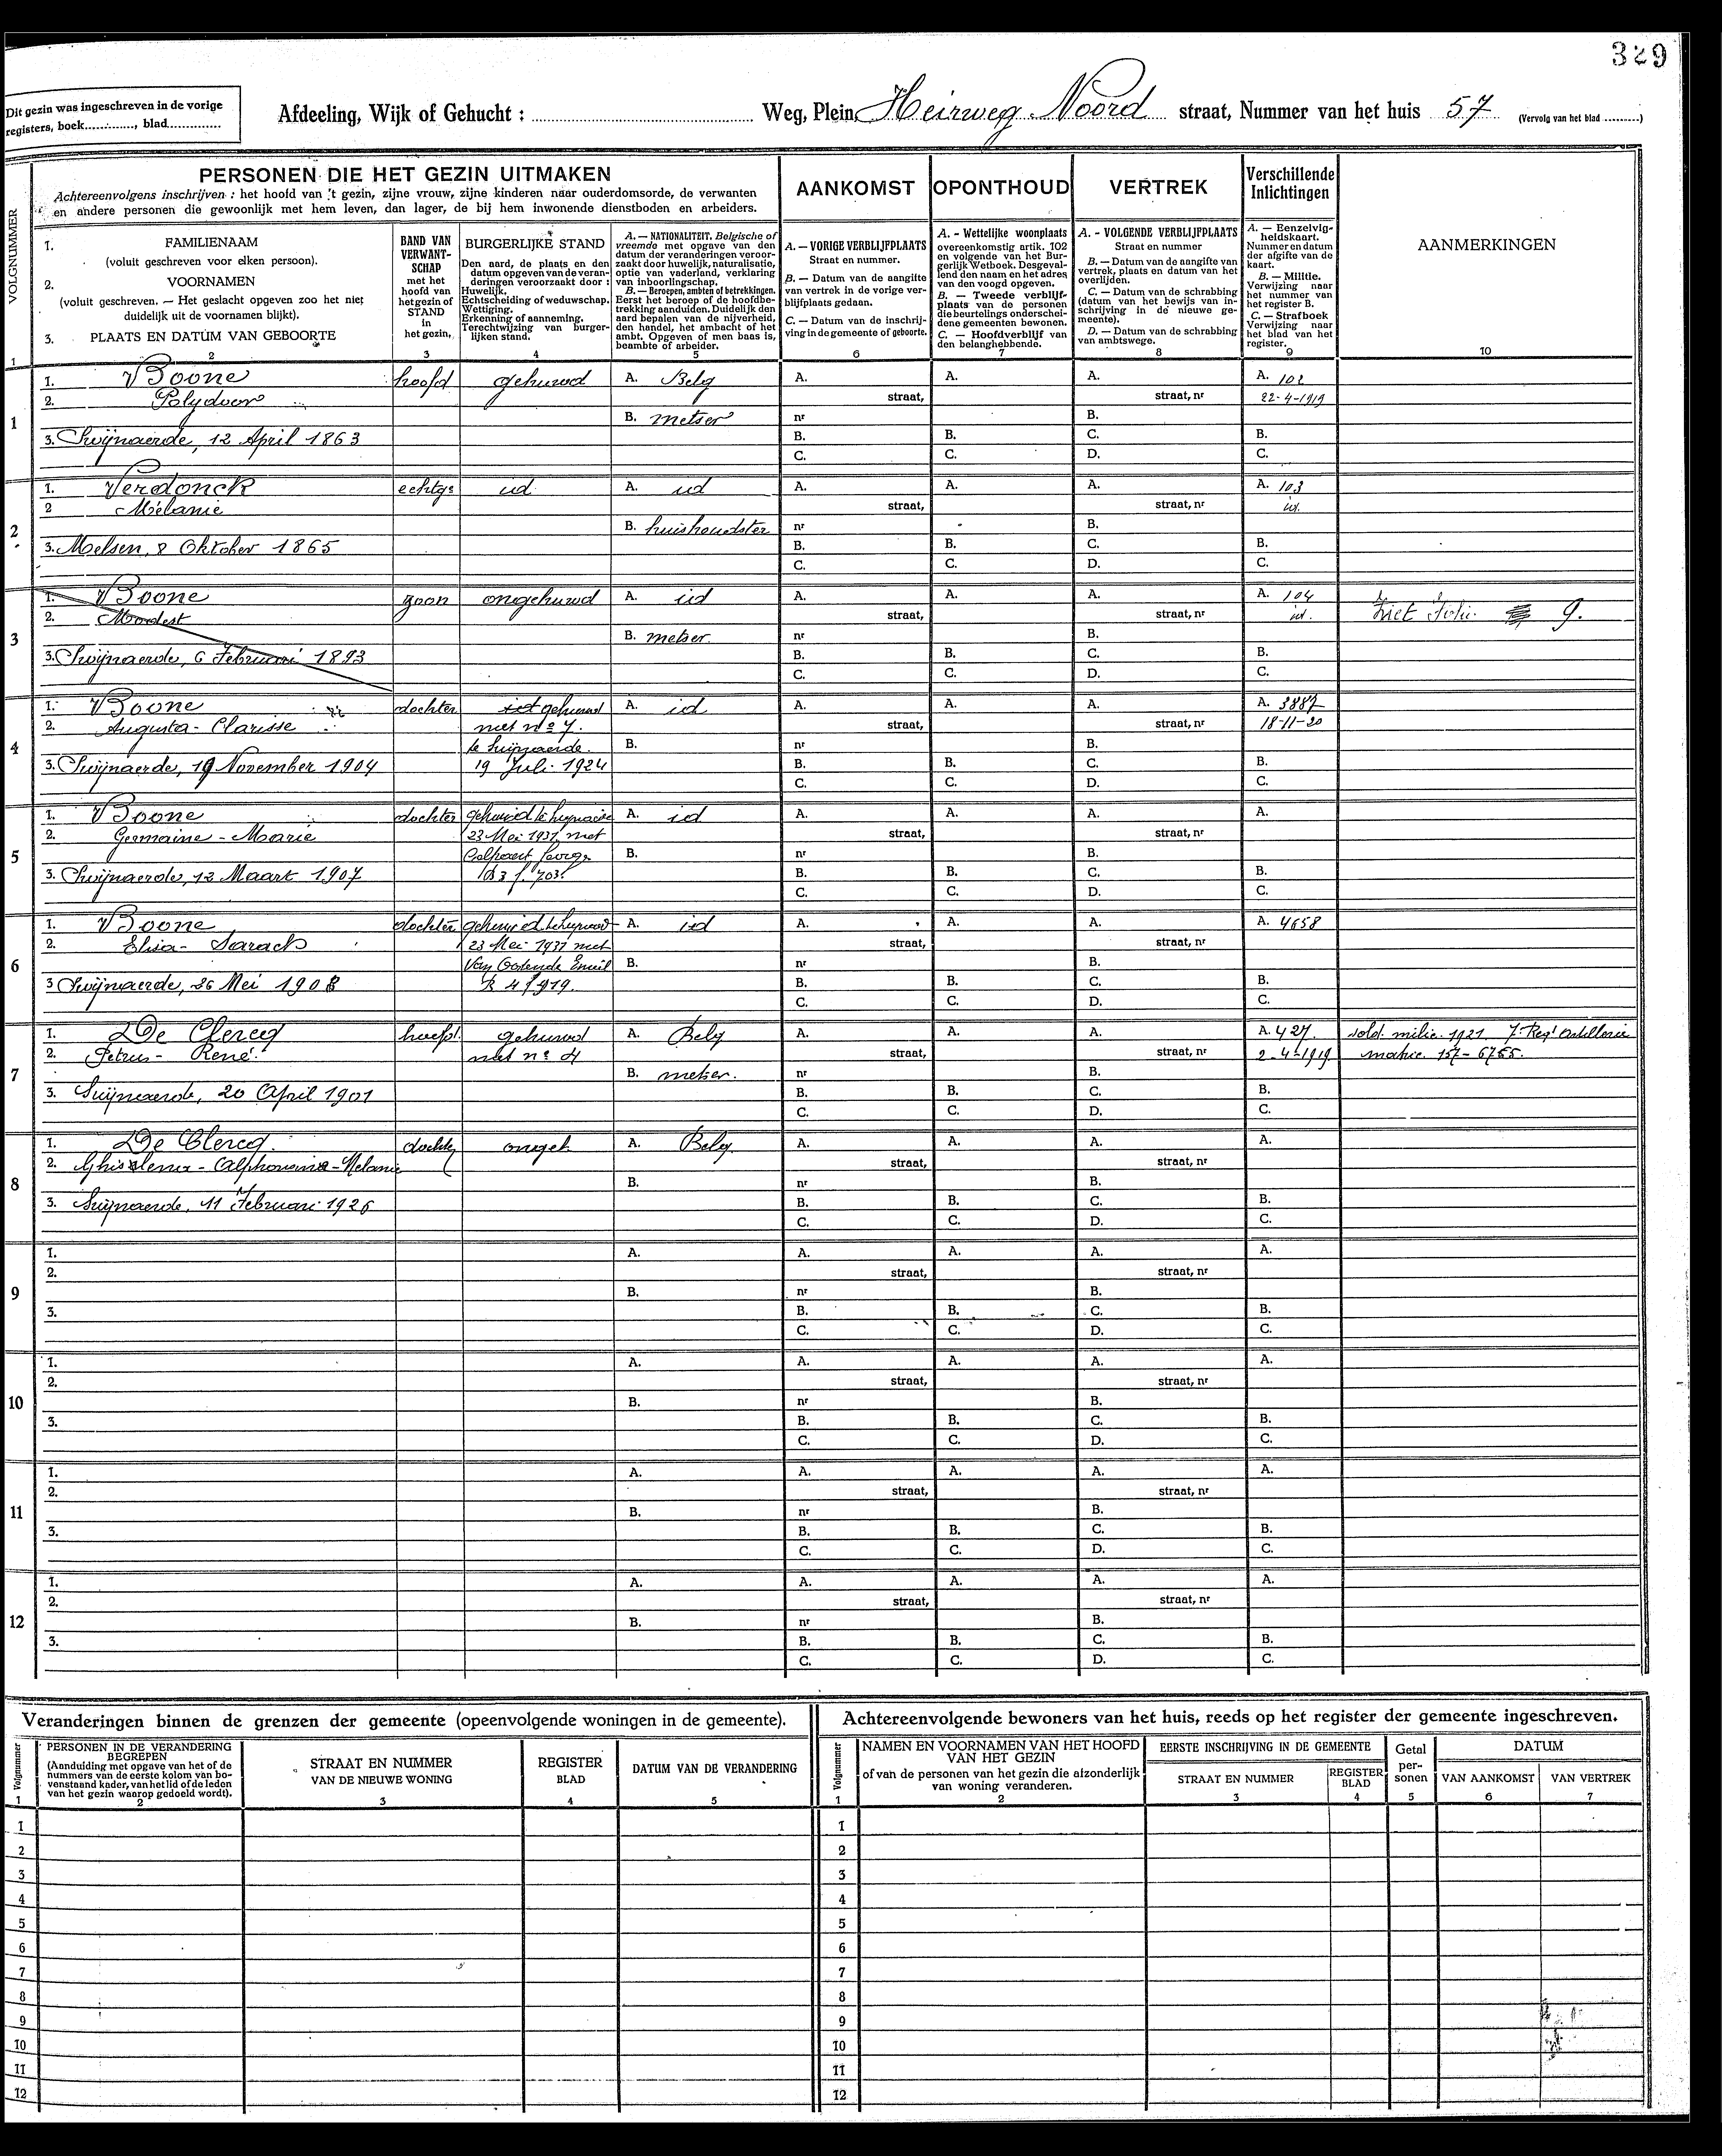 329
Dit gezin was ingeschreven in de vorige
registers, boek............, blad..............
Afdeeling, Wijk of Gehucht : ........ Weg, Plein, Heirweg Noord straat, Nummer van het huis 57 (Vervolg van het blad .........)
PERSONEN DIE HET GEZIN UITMAKEN
Achtereenvolgens inschrijven : het hoofd van 't gezin, zijne vrouw, zijne kinderen naar ouderdomsorde, de verwanten
en andere personen die gewoonlijk met hem leven, dan lager, de bij hem inwonende dienstboden en arbeiders.
AANKOMST
OPONTHOUD
VERTREK
Verschillende
Inlichtingen
VOLGNUMMER
1
1. FAMILIENAAM
(voluit geschreven voor elken persoon).
2. VOORNAMEN
(voluit geschreven. — Het geslacht opgeven zoo het niet
duidelijk uit de voornamen blijkt).
3. PLAATS EN DATUM VAN GEBOORTE
2
BAND VAN
VERWANT-
SCHAP
met het
hoofd van
het gezin of
STAND
in
het gezin.
3
BURGERLIJKE STAND
Den aard, de plaats en den
datum opgeven van de veran-
deringen veroorzaakt door :
Huwelijk.
Echtscheiding of weduwschap.
Wettiging.
Erkenning of aanneming.
Terechtwijzing van burger-
lijken stand.
4
A. — NATIONALITEIT. Belgische of
vreemde met opgave van den
datum der veranderingen veroor-
zaakt door huwelijk, naturalisatie,
optie van vaderland, verklaring
van inboorlingschap.
B. — Beroepen, ambten of betrekkingen.
Eerst het beroep of de hoofdbe-
trekking aanduiden. Duidelijk den
aard bepalen van de nijverheid,
den handel, het ambacht of het
ambt. Opgeven of men baas is,
beambte of arbeider.
5
A. — VORIGE VERBLIJFPLAATS
Straat en nummer.
B. — Datum van de aangifte
van vertrek in de vorige ver-
blijfplaats gedaan.
C. — Datum van de inschrij-
ving in de gemeente of geboorte.
6
A. - Wettelijke woonplaats
overeenkomstig artik. 102
en volgende van het Bur-
gerlijk Wetboek. Desgeval-
lend den naam en het adres
van den voogd opgeven.
B. — Tweede verblijf-
plaats van de personen
die beurtelings onderschei-
dene gemeenten bewonen.
C. — Hoofdverblijf van
den belanghebbende.
7
A. - VOLGENDE VERBLIJFPLAATS
Straat en nummer
B. — Datum van de aangifte van
vertrek, plaats en datum van het
overlijden.
C. — Datum van de schrabbing
(datum van het bewijs van in-
schrijving in de nieuwe ge-
meente).
D. — Datum van de schrabbing
van ambtswege.
8
A. — Eenzelvig-
heidskaart.
Nummer en datum
der afgifte van de
kaart.
B. — Militie.
Verwijzing naar
het nummer van
het register B.
C. — Strafboek
Verwijzing naar
het blad van het
register.
9
AANMERKINGEN
10
1. Boone hoofd gehuwd A. Belg A. A. A. A. 102
2. Polydoor straat, straat, nr 22-4-1919
1 B. metser nr B.
3. Swijnaerde, 12 April 1863 B. B. C. B.
C. C. D. C.
1. Verdonck echtge id A. id A. A. A. A. 103
2 Mélanie straat, straat, nr id.
2 B. huishoudster nr B.
3. Melsen, 8 Oktober 1865 B. B. C. B.
C. C. D. C.
1. Boone zoon ongehuwd A. id A. A. A. A. 104
2. Modest straat, straat, nr id. 9.
3 B. metser. nr B.
3. Swijnaerde, 6 Februari 1893 B. B. C. B.
C. C. D. C.
1. Boone dochter id gehuwd A. id A. A. A. A. 3887
2. Augusta - Clarisse met nº 7. straat, straat, nr 18-11-20
4 te Swijnaerde. B. nr B.
3. Swijnaerde, 19 November 1904 19 Juli 1924 B. B. C. B.
C. C. D. C.
1. Boone dochter gehuwd te A. id A. A. A. A.
2. Germaine - Marie 23 Mei 1931 met straat, straat, nr
5 B. nr B.
3. Swijnaerde, 12 Maart 1907 B. B. C. B.
C. C. D. C.
1. Boone dochter gehuwd te A. id A. A. A. A. 4658
2. Elisa - Sarach 23 Mei 1931 met straat, straat, nr
6 Van Ootende Emiel B. nr B.
3 Swijnaerde, 26 Mei 1908 B. B. C. B.
C. C. D. C.
1. De Clercq hoofd. gehuwd A. Belg A. A. A. A. 427. sold. milic. 1921 7. Regt Artillerie
2. Petrus - René. met nº 4 straat, straat, nr 2-4-1919 matric. 157-6755.
7 B. metser. nr B.
3. Swijnaerde, 20 April 1901 B. B. C. B.
C. C. D. C.
1. De Clercq. dochter ongeh. A. Belg. A. A. A. A.
2. Ghislena - Alphonsina - Melanie straat, straat, nr
8 B. nr B.
3. Swijnaerde, 11 Februari 1926 B. B. C. B.
C. C. D. C.
1. A. A. A. A. A.
2. straat, straat, nr
9 B. nr B.
3. B. B. C. B.
C. C. D. C.
1. A. A. A. A. A.
2. straat, straat, nr
10 B. nr B.
3. B. B. C. B.
C. C. D. C.
1. A. A. A. A. A.
2. straat, straat, nr
11 B. nr B.
3. B. B. C. B.
C. C. D. C.
1. A. A. A. A. A.
2. straat, straat, nr
12 B. nr B.
3. B. B. C. B.
C. C. D. C.
Veranderingen binnen de grenzen der gemeente (opeenvolgende woningen in de gemeente).
Volgnummer
1
PERSONEN IN DE VERANDERING
BEGREPEN
(Aanduiding met opgave van het of de
nummers van de eerste kolom van bo-
venstaand kader, van het lid of de leden
van het gezin waarop gedoeld wordt).
2
STRAAT EN NUMMER
VAN DE NIEUWE WONING
3
REGISTER
BLAD
4
DATUM VAN DE VERANDERING
5
1
2
3
4
5
6
7
8
9
10
11
12
Achtereenvolgende bewoners van het huis, reeds op het register der gemeente ingeschreven.
Volgnummer
1
NAMEN EN VOORNAMEN VAN HET HOOFD
VAN HET GEZIN
of van de personen van het gezin die afzonderlijk
van woning veranderen.
2
EERSTE INSCHRIJVING IN DE GEMEENTE
STRAAT EN NUMMER
3
REGISTER
BLAD
4
Getal
per-
sonen
5
DATUM
VAN AANKOMST
6
VAN VERTREK
7
1
2
3
4
5
6
7
8
9
10
11
12